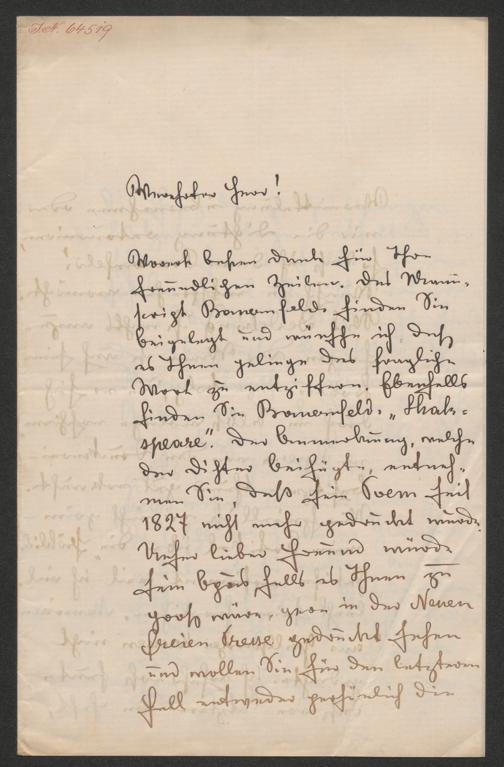 I.N. 64519
Verehrter Herr!
Vorerst besten Dank für Ihre
freundlichen Zeilen. Das Manu-
script Bauernfelds finden Sie
beigelegt und wünsche ich, daß
es Ihnen gelinge das fragliche
Wort zu entziffern. Ebenfalls
finden Sie Bauernfelds „Shak-
speare“. Der Bemerkung, welche
der Dichter beifügte, entneh-
men Sie, daß sein Poem seit
1827 nicht mehr gedruckt wurde.
Unser lieber Freund würde
sein falls es Ihnen zu
groß wäre, gern in der Neuen
freien Presse gedruckt sehen
und wollen Sie für den letzteren
Fall entweder persönlich die